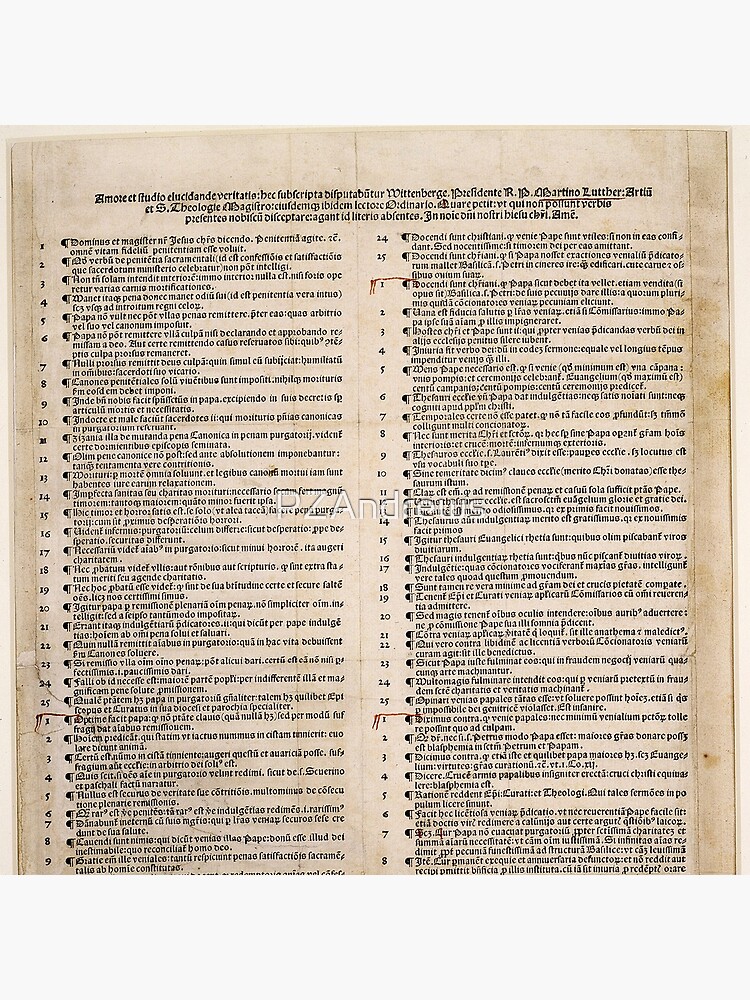 Amore et studio elucidande veritatis: hec subscripta disputabũtur Wittenberge. Presidente R. P. Martino Lutther: Artiũ
et S. Theologie Magistro: eiusdemqꝫ ibidem lectore Ordinario. Quare petit: vt qui non possunt verbis
presentes nobiscũ disceptare: agant id literis absentes. In noĩe dñi nostri hiesu chr̃i. Amẽ.
1 ¶Dominus et magister nr̃ Jesus chr̃s dicendo. Penitentiã agite. ⁊c̃.
omnẽ vitam fideliũ penitentiam esse voluit.
2 ¶Qđ verbũ de penitẽtia sacramentali (id est confessiõis et satisfactiõis
que sacerdotum ministerio celebratur) non põt intelligi.
3 ¶Non tñ solam intendit interiorẽ: immo interior nulla est. nisi foris ope
retur varias carnis mortificationes.
4 ¶Manet itaqꝫ pena donec manet odiũ sui (id est penitentia vera intus)
scꝫ vsqꝫ ad introitum regni celoꝝ.
5 ¶Papa nõ vult nec põt vllas penas remittere. p̃ter eas: quas arbitrio
vel suo vel canonum imposuit.
6 ¶Papa nõ põt remittere vllã culpã nisi declarando et approbando re-
missam a deo. Aut certe remittendo casus reseruatos sibi: quibꝰ cõtẽ-
ptis culpa prorsus remaneret.
7 ¶Nulli prorsus remittit deus culpã: quin simul eũ subijciat: humiliatũ
in omĩbus: sacerdoti suo vicario.
8 ¶Canones penitẽtiales solũ viuẽtibus sunt impositi. nihilqꝫ morituris
fm̃ eosdẽ debet imponi.
9 ¶Inde bñ nobis facit spũssctũs in papa. excipiendo in suis decretis sp̃
articulũ mortis et necessitatis.
10 ¶Indocte et male faciũt sacerdotes ij: qui morituris pñias canonicas
in purgatoriũ reseruant.
11 ¶Zizania illa de mutanda pena Canonica in penam purgatorij. vident̃
certe dormientibus episcopis seminata.
12 ¶Olim pene canonice nõ post: sed ante absolutionem imponebantur:
tanqꝫ tentamenta vere contritionis.
13 ¶Morituri p mortem omnia soluunt. et legibus canonũ mortui iam sunt
habentes iure earũm relaxationem.
14 ¶Imperfecta sanitas seu charitas morituri: necessario secum fert magnũ
timorem: tantoqꝫ maiorem: quãto minor fuerit ipsa.
15 ¶Hic timor et horror: satis est. se solo (vt alia taceã) facere penam purga-
torij: cum sit ꝓximus desperatiõis horrori.
16 ¶Vident̃ infernus: purgatoriũ: celum differre: sicut desperatio: ꝓpe de-
speratio: securitas differunt.
17 ¶Necessariũ videt̃ aĩabꝰ in purgatorio: sicut minui horrorẽ. ita augeri
charitatem.
18 ¶Nec ꝓbatum videt̃ vllis: aut rõnibus aut scripturis. ꝙ sint extra sta-
tum meriti seu agende charitatis.
19 ¶Nec hoc ꝓbatũ esse videt̃. ꝙ sint de sua btĩtudine certe et secure saltẽ
oẽs. lꝫ nos certissimi simus.
20 ¶Igitur papa p remissionẽ plenariã oĩm penaꝝ. nõ simpliciter oĩm. in-
telligit: sed a seipso tantũmõdo impositaꝝ.
21 ¶Errant itaqꝫ indulgẽtiarũ p̃dicatores. ij: qui dicũt per pape indulgẽ
tias: hoĩem ab omĩ pena solui et saluari.
22 ¶Quin nullã remittit aĩabus in purgatorio: quã in hac vita debuissent
fm̃ Canones soluere.
23 ¶Si remissio vlla oĩm oĩno penaꝝ: põt alicui dari. certũ est eã nõ nisi p̃
fectissimis. i. paucissimis dari.
24 ¶Falli ob id necesse est: maiorẽ partẽ popli: per indifferentẽ illã et ma-
gnificam pene solute ꝓmissionem.
25 ¶Qualẽ p̃tãtem hꝫ papa in purgatoriũ gñaliter: talem hꝫ quilibet Epi
scopus et Curatus in sua diocesi et parochia specialiter.
1 ¶Optime facit papa: ꝙ nõ p̃tãte clauis (quã nullã hꝫ) sed per modũ suf
fragij dat aĩabus remissionem.
2 ¶Hoĩem predicãt. qui statim vt iactus nummus in cistam tinnierit: euo
lare dicunt animã.
3 ¶Certũ est: nũmo in cistã tinniente: augeri questũ et auariciã posse. suf-
fragium aũt ecclesie: in arbitrio dei soliꝰ est.
4 ¶Quis scit. si oẽs aĩe in purgatorio velint redimi. sicut de. s. Seuerino
et paschali factũ narratur.
5 ¶Nullus est securus de veritate sue cõtritiõis. multominus de cõsecu
tione plenarie remissionis.
6 ¶Qm̃ rarꝰ est ṽe penitẽs: tã rarꝰ est ṽe indulgẽtias redimẽs. i. rarissimꝰ
7 ¶Dãnabunt̃ ineternũ cũ suis mgr̃is: qui p lr̃as veniaꝝ securos sese cre
dunt de sua salute.
8 ¶Cauendi sunt nimis: qui dicũt venias illas Pape: donũ esse illud dei
inestimabile: quo reconciliat̃ homo deo.
9 ¶Gratie em̃ ille veniales: tantũ respiciunt penas satisfactiõis sacramẽ-
talis ab homĩe constitutas.
24 ¶Docendi sunt christiani. ꝙ Pape venie sunt vtiles: si non in eas confi-
dant. Sed nocentissime: si timorem dei per eas amittant.
25 ¶Docendi sunt chr̃iani. ꝙ si Papa nosset exactiones venialiũ p̃dicato-
rum mallet Basilicã. s. Petri in cineres ire: ꝙ̃ edificari. cute carne et os-
sibus ouium suaꝝ.
1 ¶Docendi sunt chr̃iani. ꝙ Papa sicut debet ita vellet. etiam vendita (si
opus sit) Basilica. s. Petri: de suis pecunijs dare illis: a quoꝝ plurimis
quidã cõcionatores veniaꝝ pecuniam eliciunt.
2 ¶Vana est fiducia salutis p lr̃as veniaꝝ. etiã si Cõmissarius: immo Pa-
pa ipse suã aĩam ꝓ illis impigneraret.
3 ¶Hostes chr̃i et Pape sunt ij: qui ꝓpter venias p̃dicandas verbũ dei in
alijs ecclesijs penitus silere iubent.
4 ¶Iniuria fit verbo dei: dũ in eodẽ sermone: equale vel longius tẽpus
impenditur venijs qꝫ illi.
5 ¶Mens Pape necessario est. ꝙ si venie (qđ minimum est) vna cãpana:
vnis pompis: et ceremonijs celebrant̃. Euangelium (qđ maximũ est)
centũ campanis: centũ pompis: centũ ceremonijs p̃dicet̃.
6 ¶Thesauri ecclie vñ Papa dat indulgẽtias: neqꝫ satis noĩati sunt: neqꝫ
cogniti apud ppłm christi.
7 ¶Temporales certe nõ esse patet. ꝙ nõ tã facile eos ꝓfundũt: sꝫ tm̃mõ
colligunt multi concionatoꝝ.
8 ¶Nec sunt merita Chr̃i et sctõꝝ. ꝙ hec sp̃ sine Papa operant̃ gr̃am hoĩs
interioris: et crucẽ: mortẽ: infernumqꝫ exterioris.
9 ¶Thesauros ecclie. s. Laurẽtiꝰ dixit esse: pauperes ecclie: sꝫ locutus est
vsu vocabuli suo tp̃e.
10 ¶Sine temeritate dicimꝰ claues ecclie (merito Chr̃i donatas) esse the
saurum istum.
11 ¶Claꝝ est em̃. ꝙ ad remissionẽ penaꝝ et casuũ sola sufficit p̃tãs Pape.
12 ¶Verus thesaurus ecclie. est sacrosctm̃ euãgelium glorie et gratie dei.
13 ¶Hic aũt est merito odiosissimus. qꝛ ex primis facit nouissimos.
14 ¶Thesaurus aũt indulgentiaꝝ merito est gratissimus. qꝛ ex nouissimis
facit primos
15 ¶Igitur thesauri Euangelici rhetia sunt: quibus olim piscabant̃ viros
diuitiarum.
16 ¶Thesauri indulgentiaꝝ rhetia sunt: qᷓbus nũc piscant̃ diuitias viroꝝ.
17 ¶Indulgẽtie: quas cõcionatores vociferant̃ maxĩas gr̃as. intelligunt̃
vere tales quoad questum ꝓmouendum.
18 ¶Sunt tamen re vera minime ad gr̃am dei et crucis pietatẽ compate.
19 ¶Tenent̃ Epĩ et Curati veniaꝝ apĺicaꝝ Cõmissarios cũ oĩ reuerentia
admittere.
20 ¶Sed magis tenent̃ oĩbus oculis intendere: oĩbus auribꝰ aduertere:
ne ꝓ cõmissione Pape sua illi somnia p̃dicent.
21 ¶Cõtra veniaꝝ apĺicaꝝ ṽitatẽ qᷓ loquit̃. sit ille anathema ⁊ maledictꝰ.
22 ¶Qui vero contra libidinẽ ac licentiã verboꝝ Cõcionatoris veniarũ
curam agit: sit ille benedictus.
23 ¶Sicut Papa iuste fulminat eos: qui in fraudem negocij veniarũ qua-
cunqꝫ arte machinantur.
24 ¶Multomagis fulminare intendit eos: qui ꝑ veniarũ pretextũ in frau-
dem sctẽ charitatis et veritatis machinant̃.
25 ¶Opinari venias papales tãtas esse: vt soluere possint hoĩez. etiã si qᷓs
ꝑ impossibile dei genitricẽ violasset. Est insanire.
1 ¶Diximus contra. ꝙ venie papales: nec minimũ venialium pctõꝝ tolle
re possint quo ad culpam.
2 ¶Qđ dr̃. nec si. s. Petrus modo Papa esset: maiores gr̃as donare posset
est blasphemia in sctm̃ Petrum et Papam.
3 ¶Dicimus contra. ꝙ etiã iste et quilibet papa maiores hꝫ. scꝫ Euange-
lium: virtutes: gr̃as. ⁊c̃. vt. i. Co. xij.
4 ¶Dicere. Crucẽ armis papalibus insigniter erectã: cruci christi equiua
lere: blasphemia est.
5 ¶Rationẽ reddent Epĩ: Curati: et Theologi. Qui tales sermões in po
pulum licere sinunt.
6 ¶Facit hec licẽtiosa veniaꝝ p̃dicatio. vt nec reuerentiã Pape facile sit:
etiã doctis viris redimere a calũnijs aut certe argutꝭ q̃stiõibꝰ laicoꝝ.
7 ¶Scꝫ. Cur Papa nõ euacuat purgatoriũ ꝓpter sctissimã charitatẽ et
summã aĩaꝝ necessitatẽ: vt cãm oĩm iustissimã. Si infinitas aĩas re-
dimit ꝓpt̃ pecuniã funestissimã ad structurã Basilice: vt cãꝫ leuissimã
8 ¶Itẽ. Cur ꝑmanẽt exequie et anniuersaria defunctoꝝ: et nõ reddit aut
recipi ꝑmittit bñficia ꝓ illis instituta. cũ iã sit iniuria ꝓ redẽptꝭ orare
RZAndrews